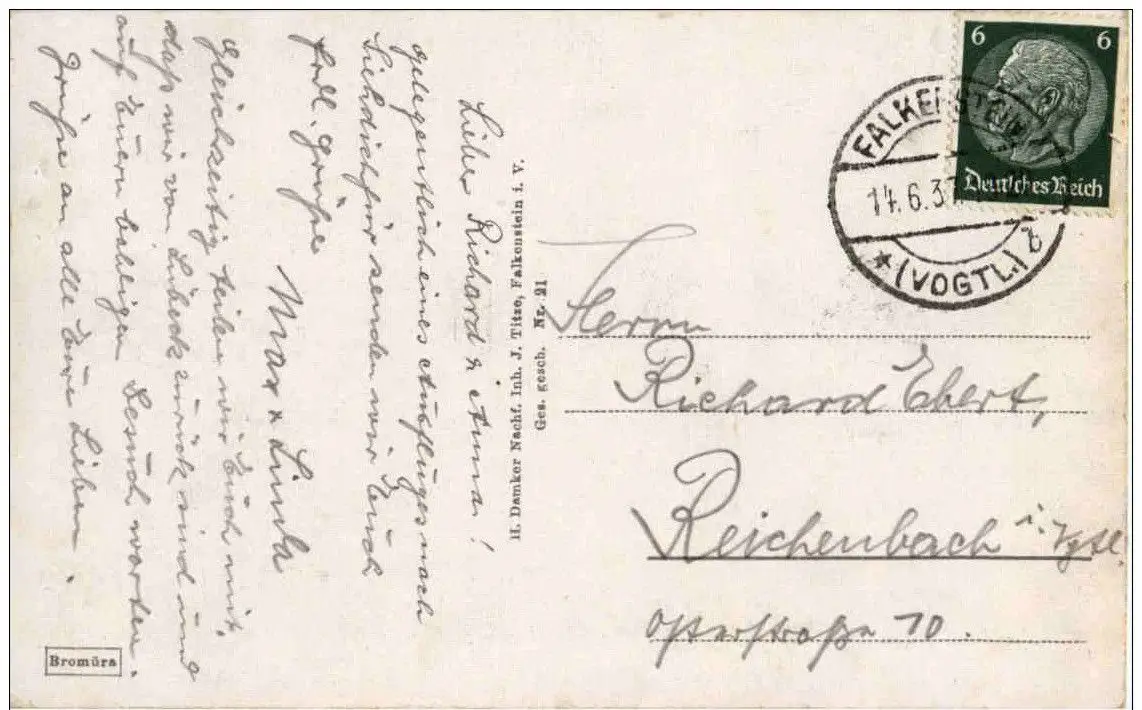 Lieber Richard & Anna!
gelegentlich eines Ausfluges nach
Siehdichfür senden wir Euch
herzl. Grüße
Max & Linda
Gleichzeitig teilen wir Euch mit,
daß wir von Lübeck zurück sind und
auf Euern baldigen Besuch warten.
Grüße an alle Eure Lieben.
Bromüra
H. Damker Nachf. Inh. J. Titze, Falkenstein i. V.
Ges. gesch. Nr. 21
6 6
Deutsches Reich
FALKENSTEIN
14.6.37
* (VOGTL.) b
Herrn
Richard Ebert,
Reichenbach i. Vgtl.
10.